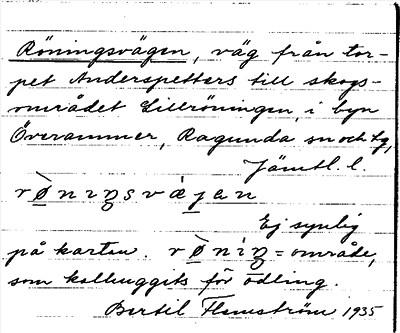 Röningsvägen, väg från tor-
pet Anderspetters till skogs-
området Lillröningen, i byn
Överammer, Ragunda sn och tg,
Jämtl. l.
rø̀nıŋsvǽgan
Ej synlig
på kartan. rø̀nìŋ = område,
som kalhuggits för odling.
Bertil Flemström 1935